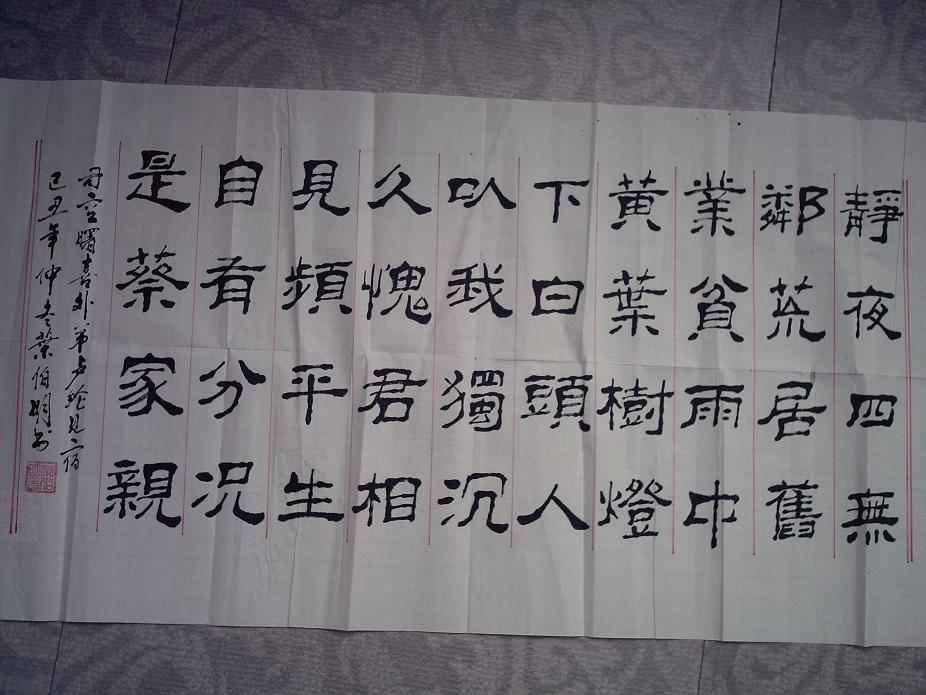 靜夜四無
鄰荒居舊
業貧雨中
黃葉樹燈
下白頭人
以我獨沉
久愧君相
見頻平生
自有分況
是蔡家親
司空曙喜外弟卢纶见宿
己丑年仲冬伯明书